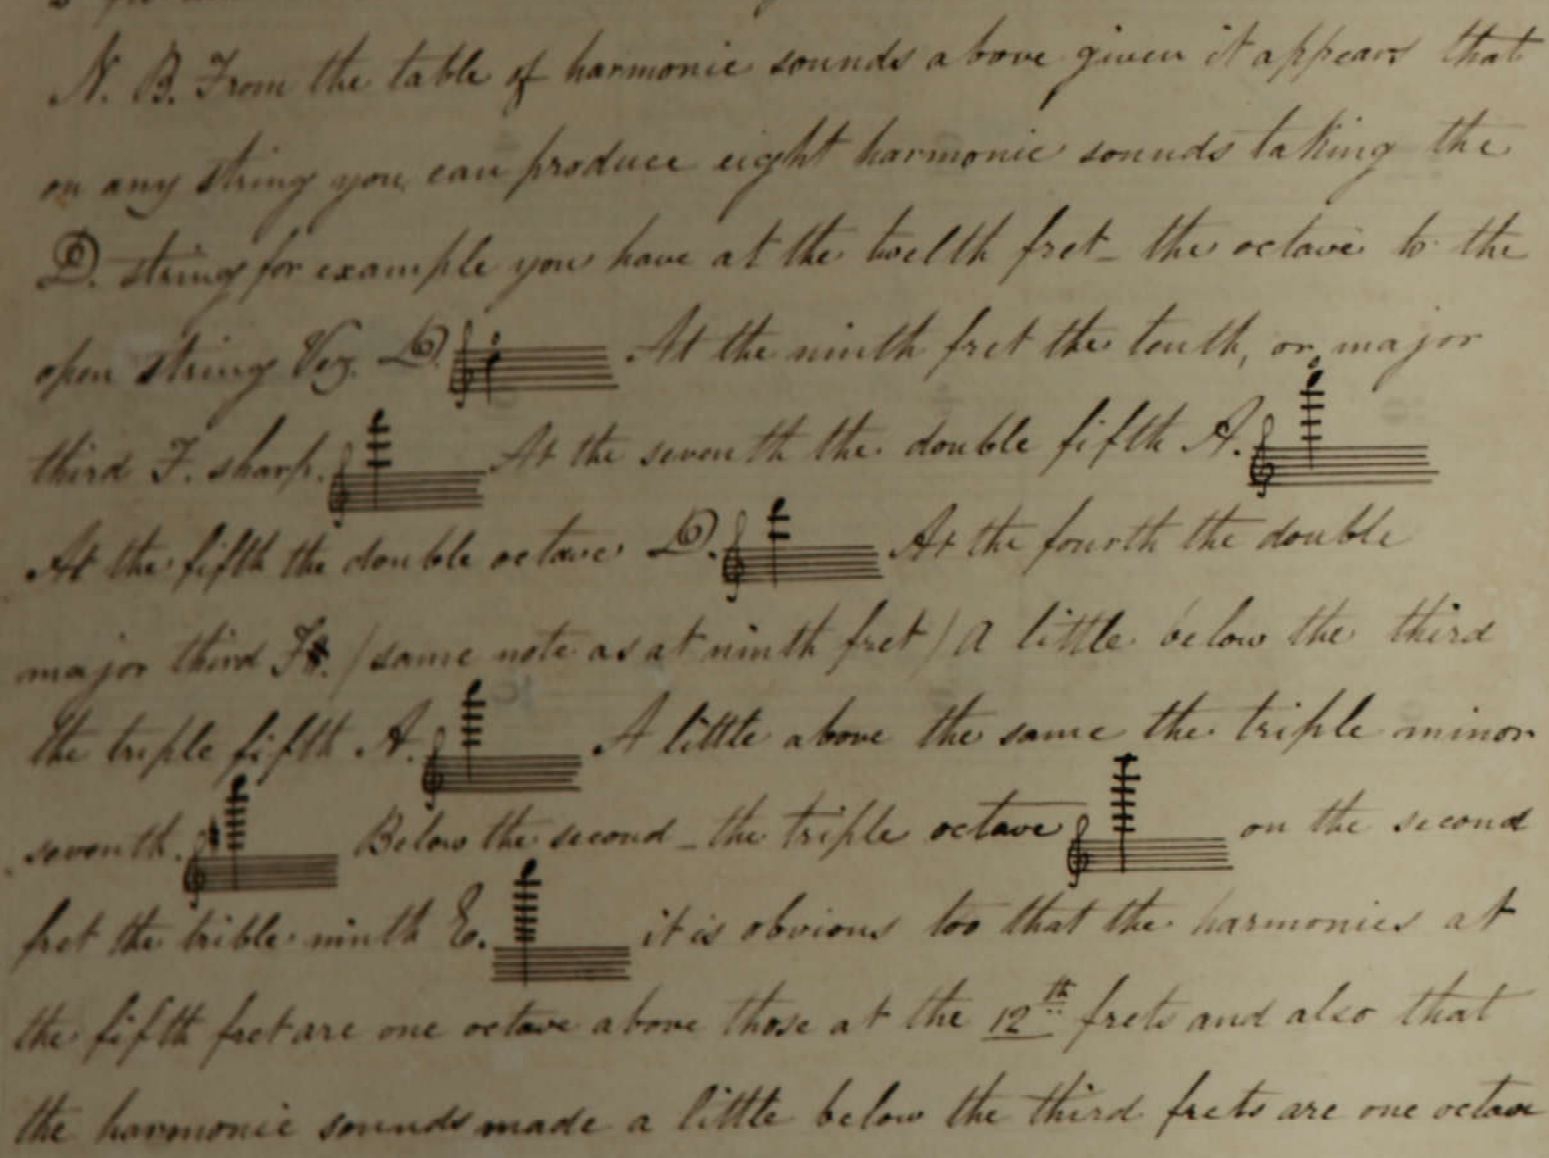 N. B. From the table of harmonic sounds above given it appears that
on any string you can produce eight harmonic sounds taking the
D. string for example you have at the twelth fret _ the octave to the
open string Vez. D. At the ninth fret the tenth, or major
third F. sharp. At the seventh the double fifth A.
At the fifth the double octave D. At the fourth the double
major third F#. / same note as at ninth fret / A little below the third
the triple fifth A. A little above the same the triple minor
seventh. Below the second _ the triple octave on the second
fret the trible ninth E. it is obvious too that the harmonics at
the fifth fret are one octave above those at the 12th frets and also that
the harmonic sounds made a little below the third frets are one octave